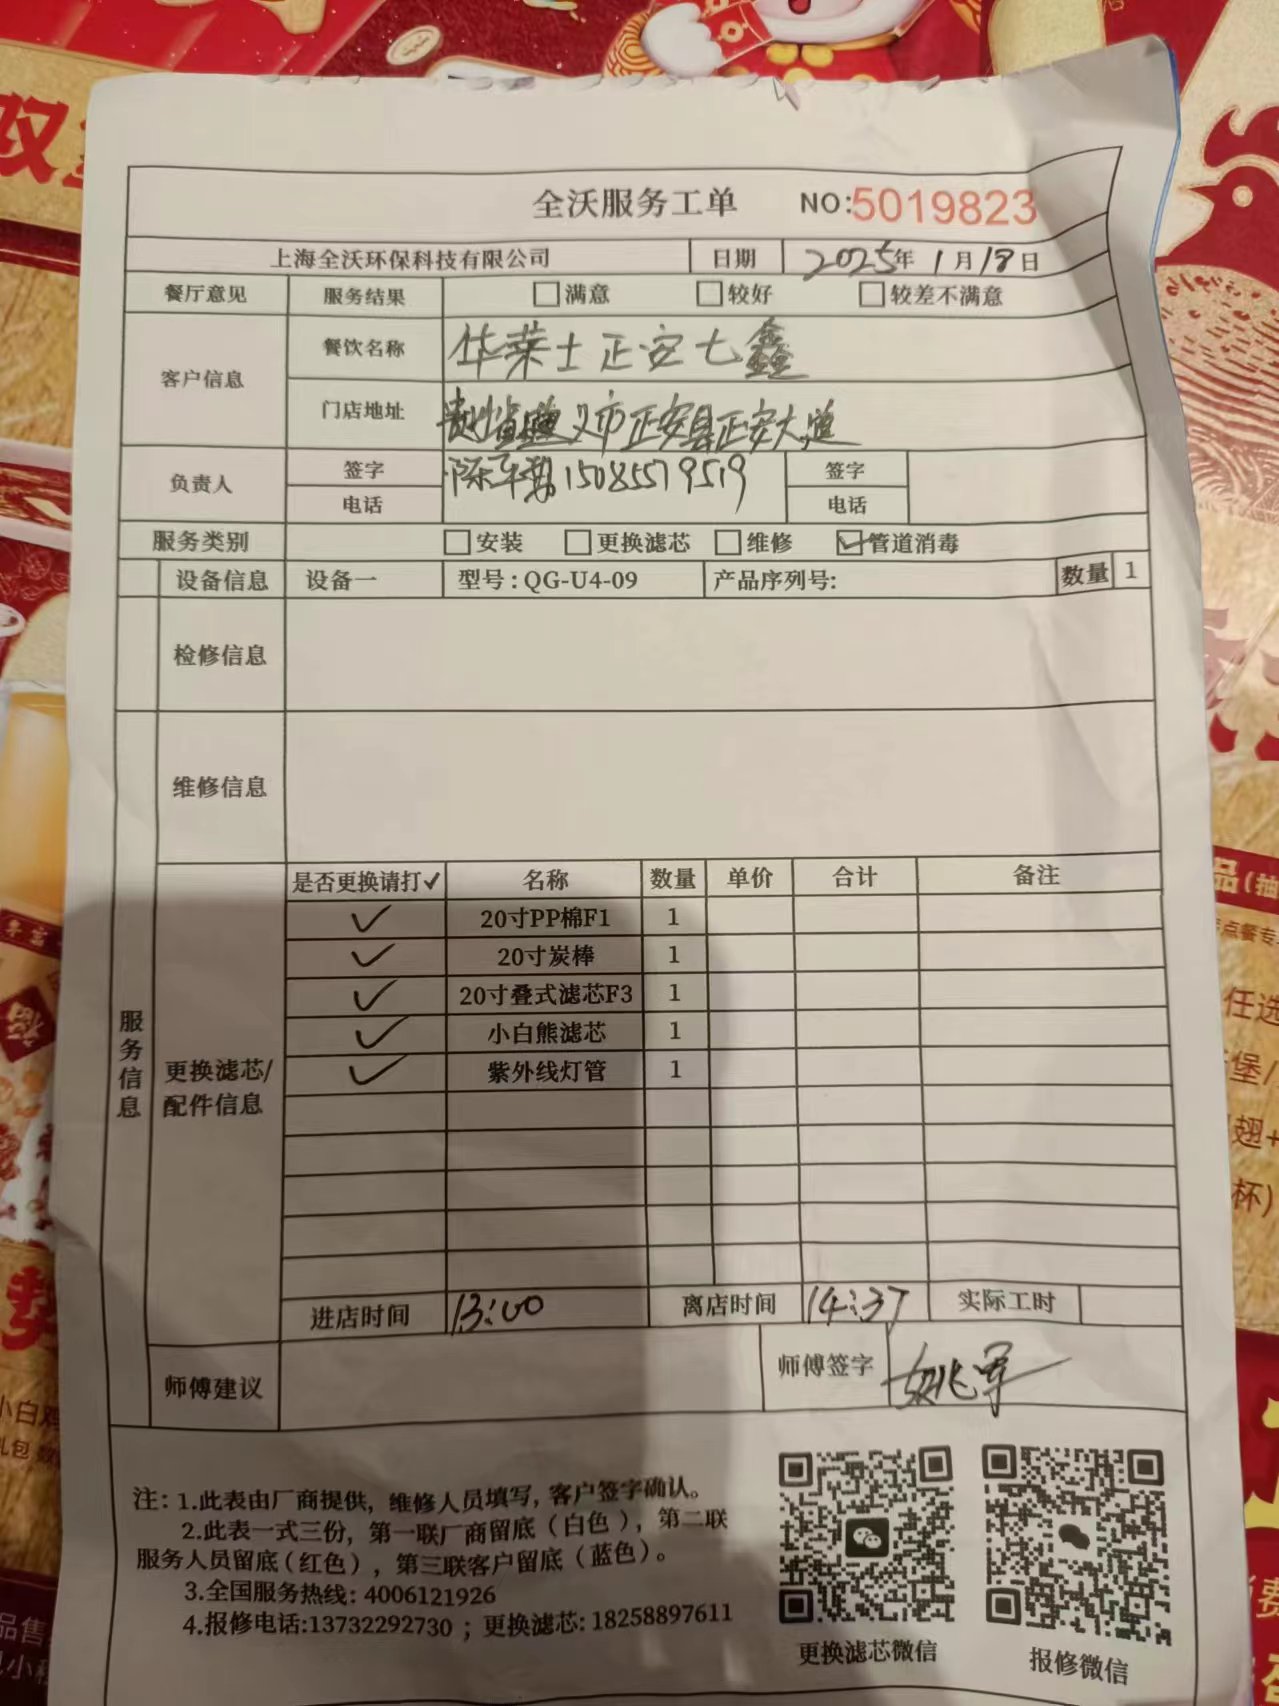 全沃服务工单 NO:5019823
上海全沃环保科技有限公司 日期 2025年1月18日
餐厅意见 服务结果 □满意 □较好 □较差不满意
客户信息 餐饮名称 华莱士正安七鑫
门店地址 贵州省遵义市正安县正安大道
负责人 签字 陈 15085579519 签字
电话 电话
服务类别 □安装 □更换滤芯 □维修 ☑管道消毒
设备信息 设备一 型号:QG-U4-09 产品序列号: 数量 1
检修信息
维修信息
服务信息
更换滤芯/
配件信息
是否更换请打✓ 名称 数量 单价 合计 备注
✓ 20寸PP棉F1 1
✓ 20寸炭棒 1
✓ 20寸叠式滤芯F3 1
✓ 小白熊滤芯 1
✓ 紫外线灯管 1
进店时间 13:00 离店时间 14:37 实际工时
师傅建议 师傅签字 姚军
注:1.此表由厂商提供,维修人员填写,客户签字确认。
2.此表一式三份,第一联厂商留底(白色),第二联
服务人员留底(红色),第三联客户留底(蓝色)。
3.全国服务热线:4006121926
4.报修电话:13732292730;更换滤芯:18258897611
更换滤芯微信 报修微信